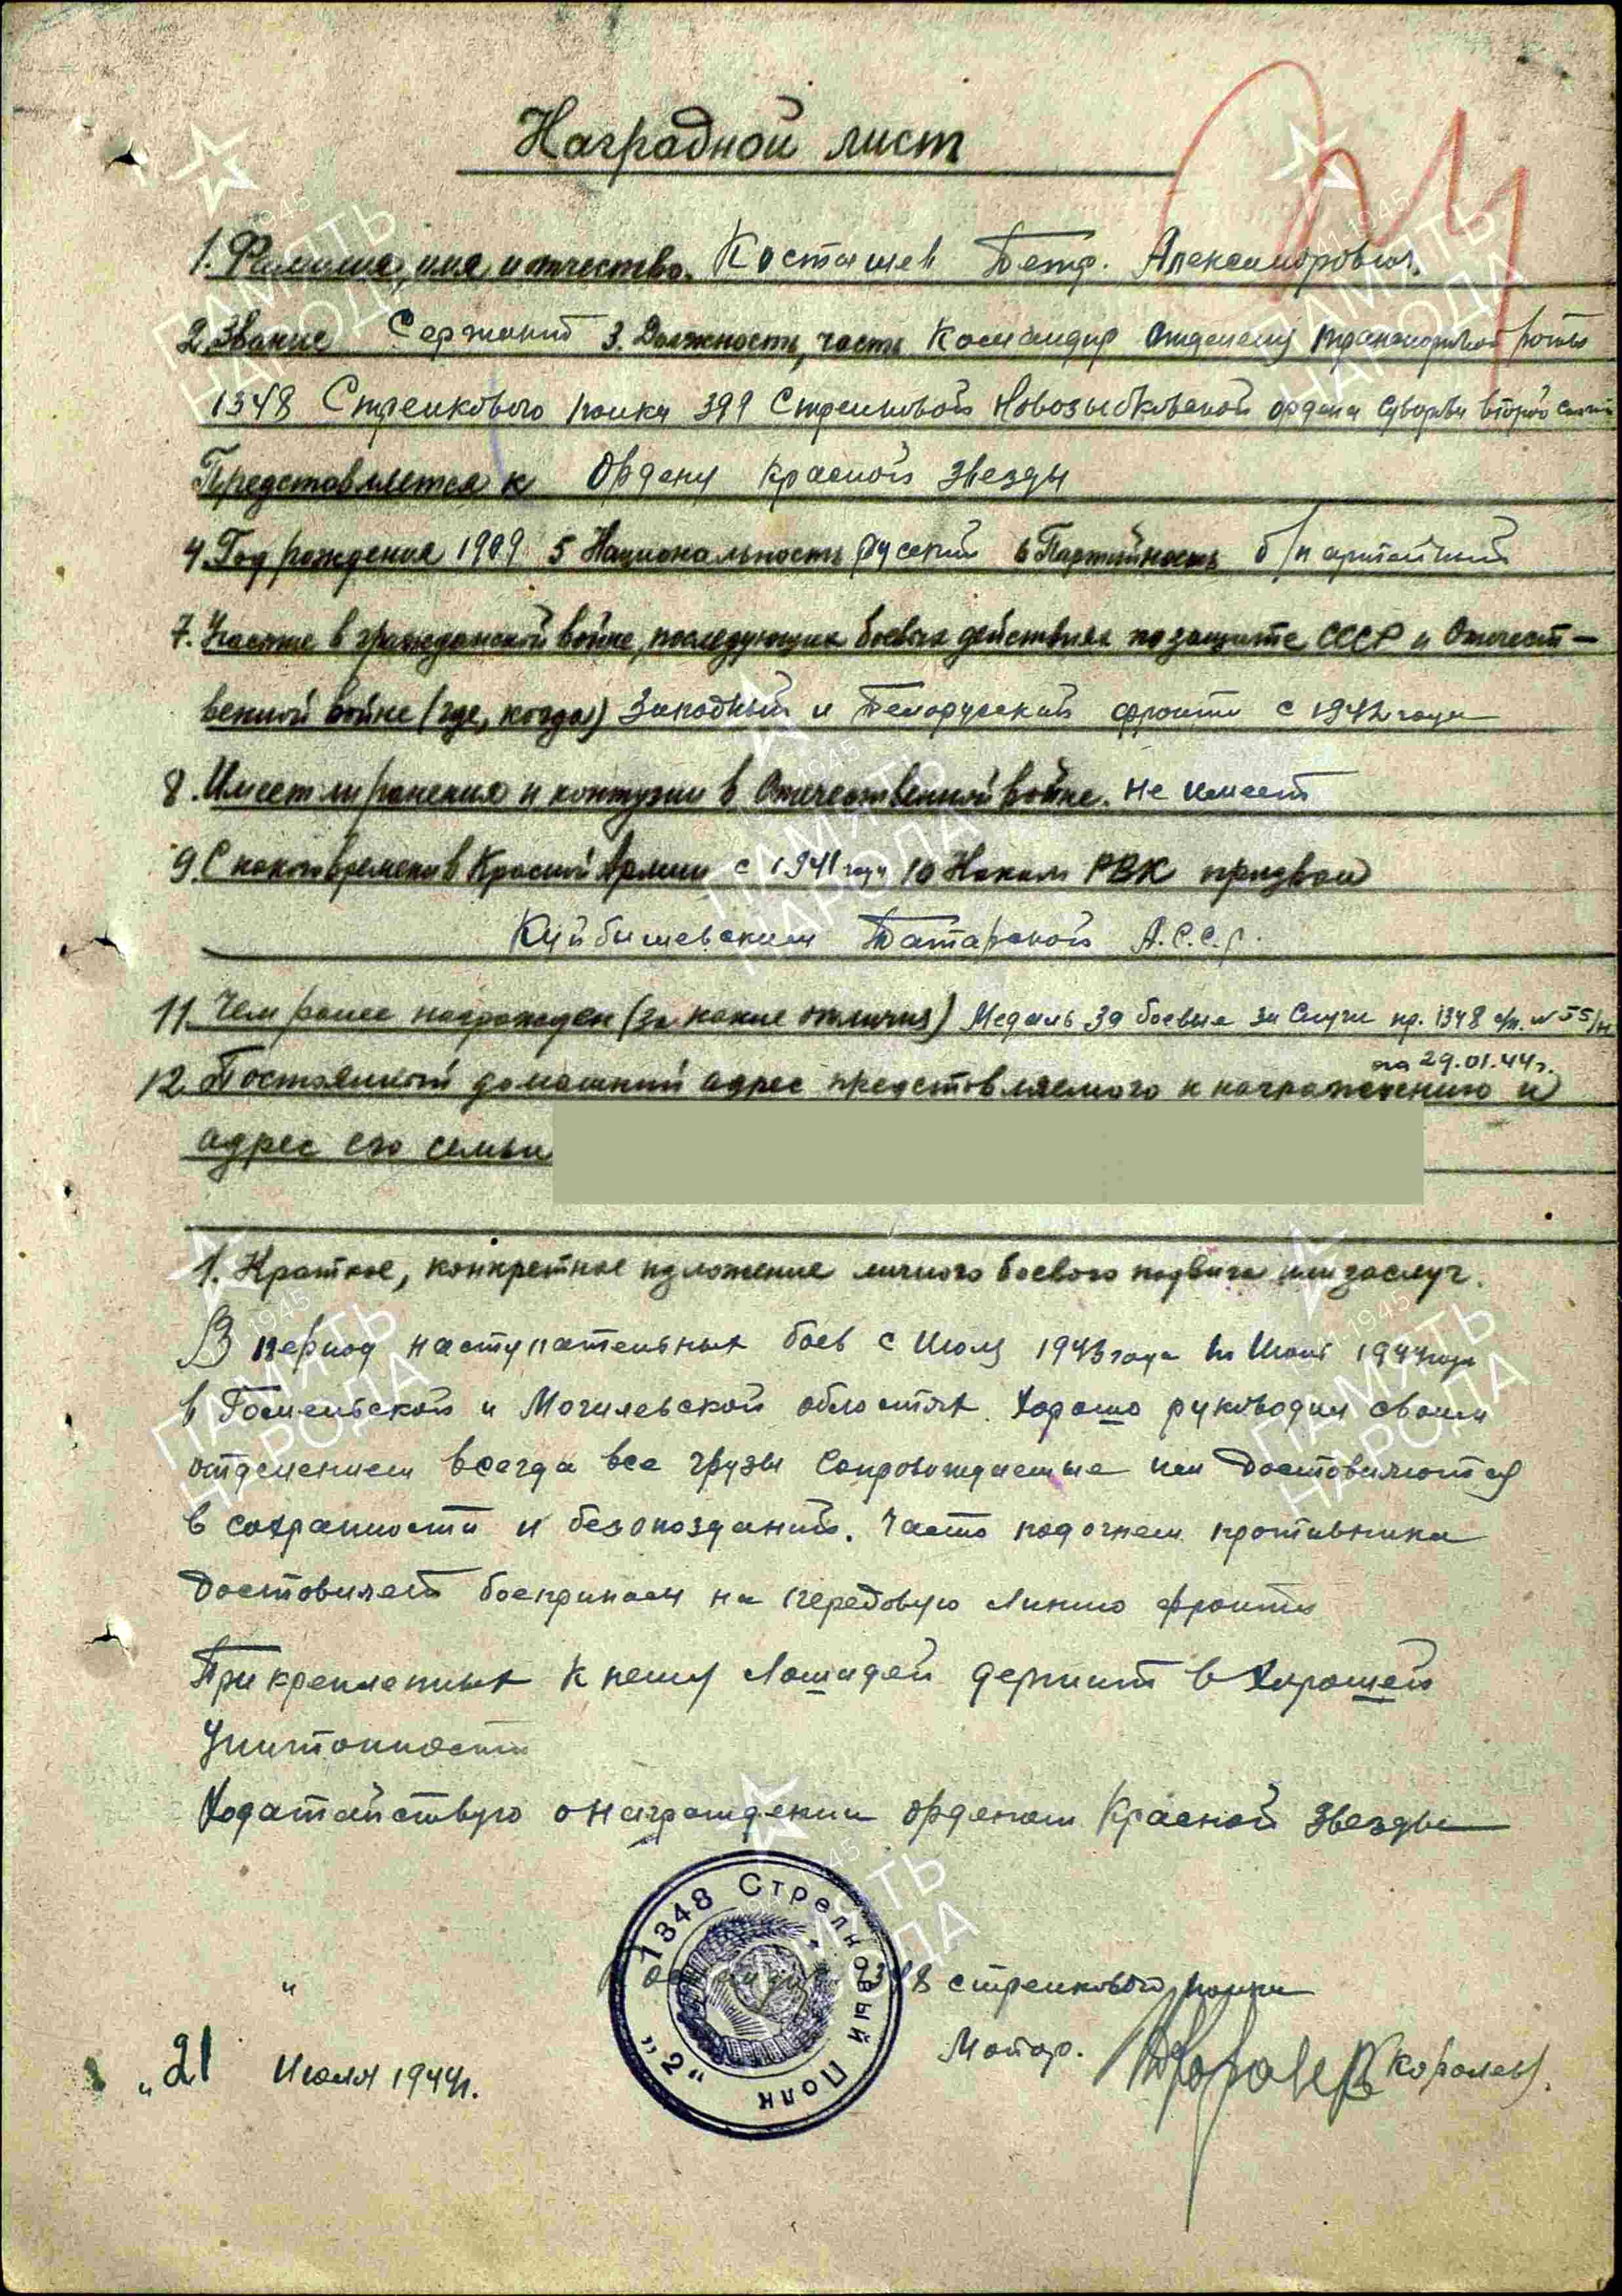 Наградной лист
1. Фамилия, имя и отчество. Косташев Петр. Александрович.
2. Звание Сержант 3. Должность, часть Командир отделения транспортной роты
1348 Стрелкового полка 399 Стрелковой Новозыбковской ордена Суворова второй
Представляется к Ордену Красной Звезды
4. Год рождения 1909 5 Национальность Русский 6 Партийность б/партейный
7. Участие в гражданской войне, последующих боевых действиях по защите СССР и Отечест-
венной войне (где, когда) Западный и Белорусский фронты с 1942 года
8. Имеет ли ранения и контузии в Отечественной войне. не имеет
9. С какого времени в Красной Армии с 1941 года 10 Каким РВК призван
Куйбышевским Татарской А.С.С.Р.
11. Чем ранее награжден (за какие отличия) Медаль За боевые заслуги пр. 1348 сп. № 55/н
от 29.01.44г.
12. Постоянный домашний адрес представляемого к награждению и
адрес его семьи
1. Краткое, конкретное изложение личного боевого подвига или заслуг.
В период наступательных боев с Июля 1943 года по 1944 года
в Гомельской и Могилевской областях. Хорошо руководил своим
отделением всегда все грузы Сопровождаемые им Доставляются
в сохранности и безопозданий. Часто подогнем противника
Доставляет боеприпасы на передовую линию фронта
Прикрепленных к нему Лошадей держит в Хорошей
Упитанности
Ходатайствую о награждении орденом Красной Звезды
1348 Стрелковый Полк "2"
1348 стрелкового полка
Майор. Королев.
"21 Июля 1944г.
ПАМЯТЬ НАРОДА
1941-1945